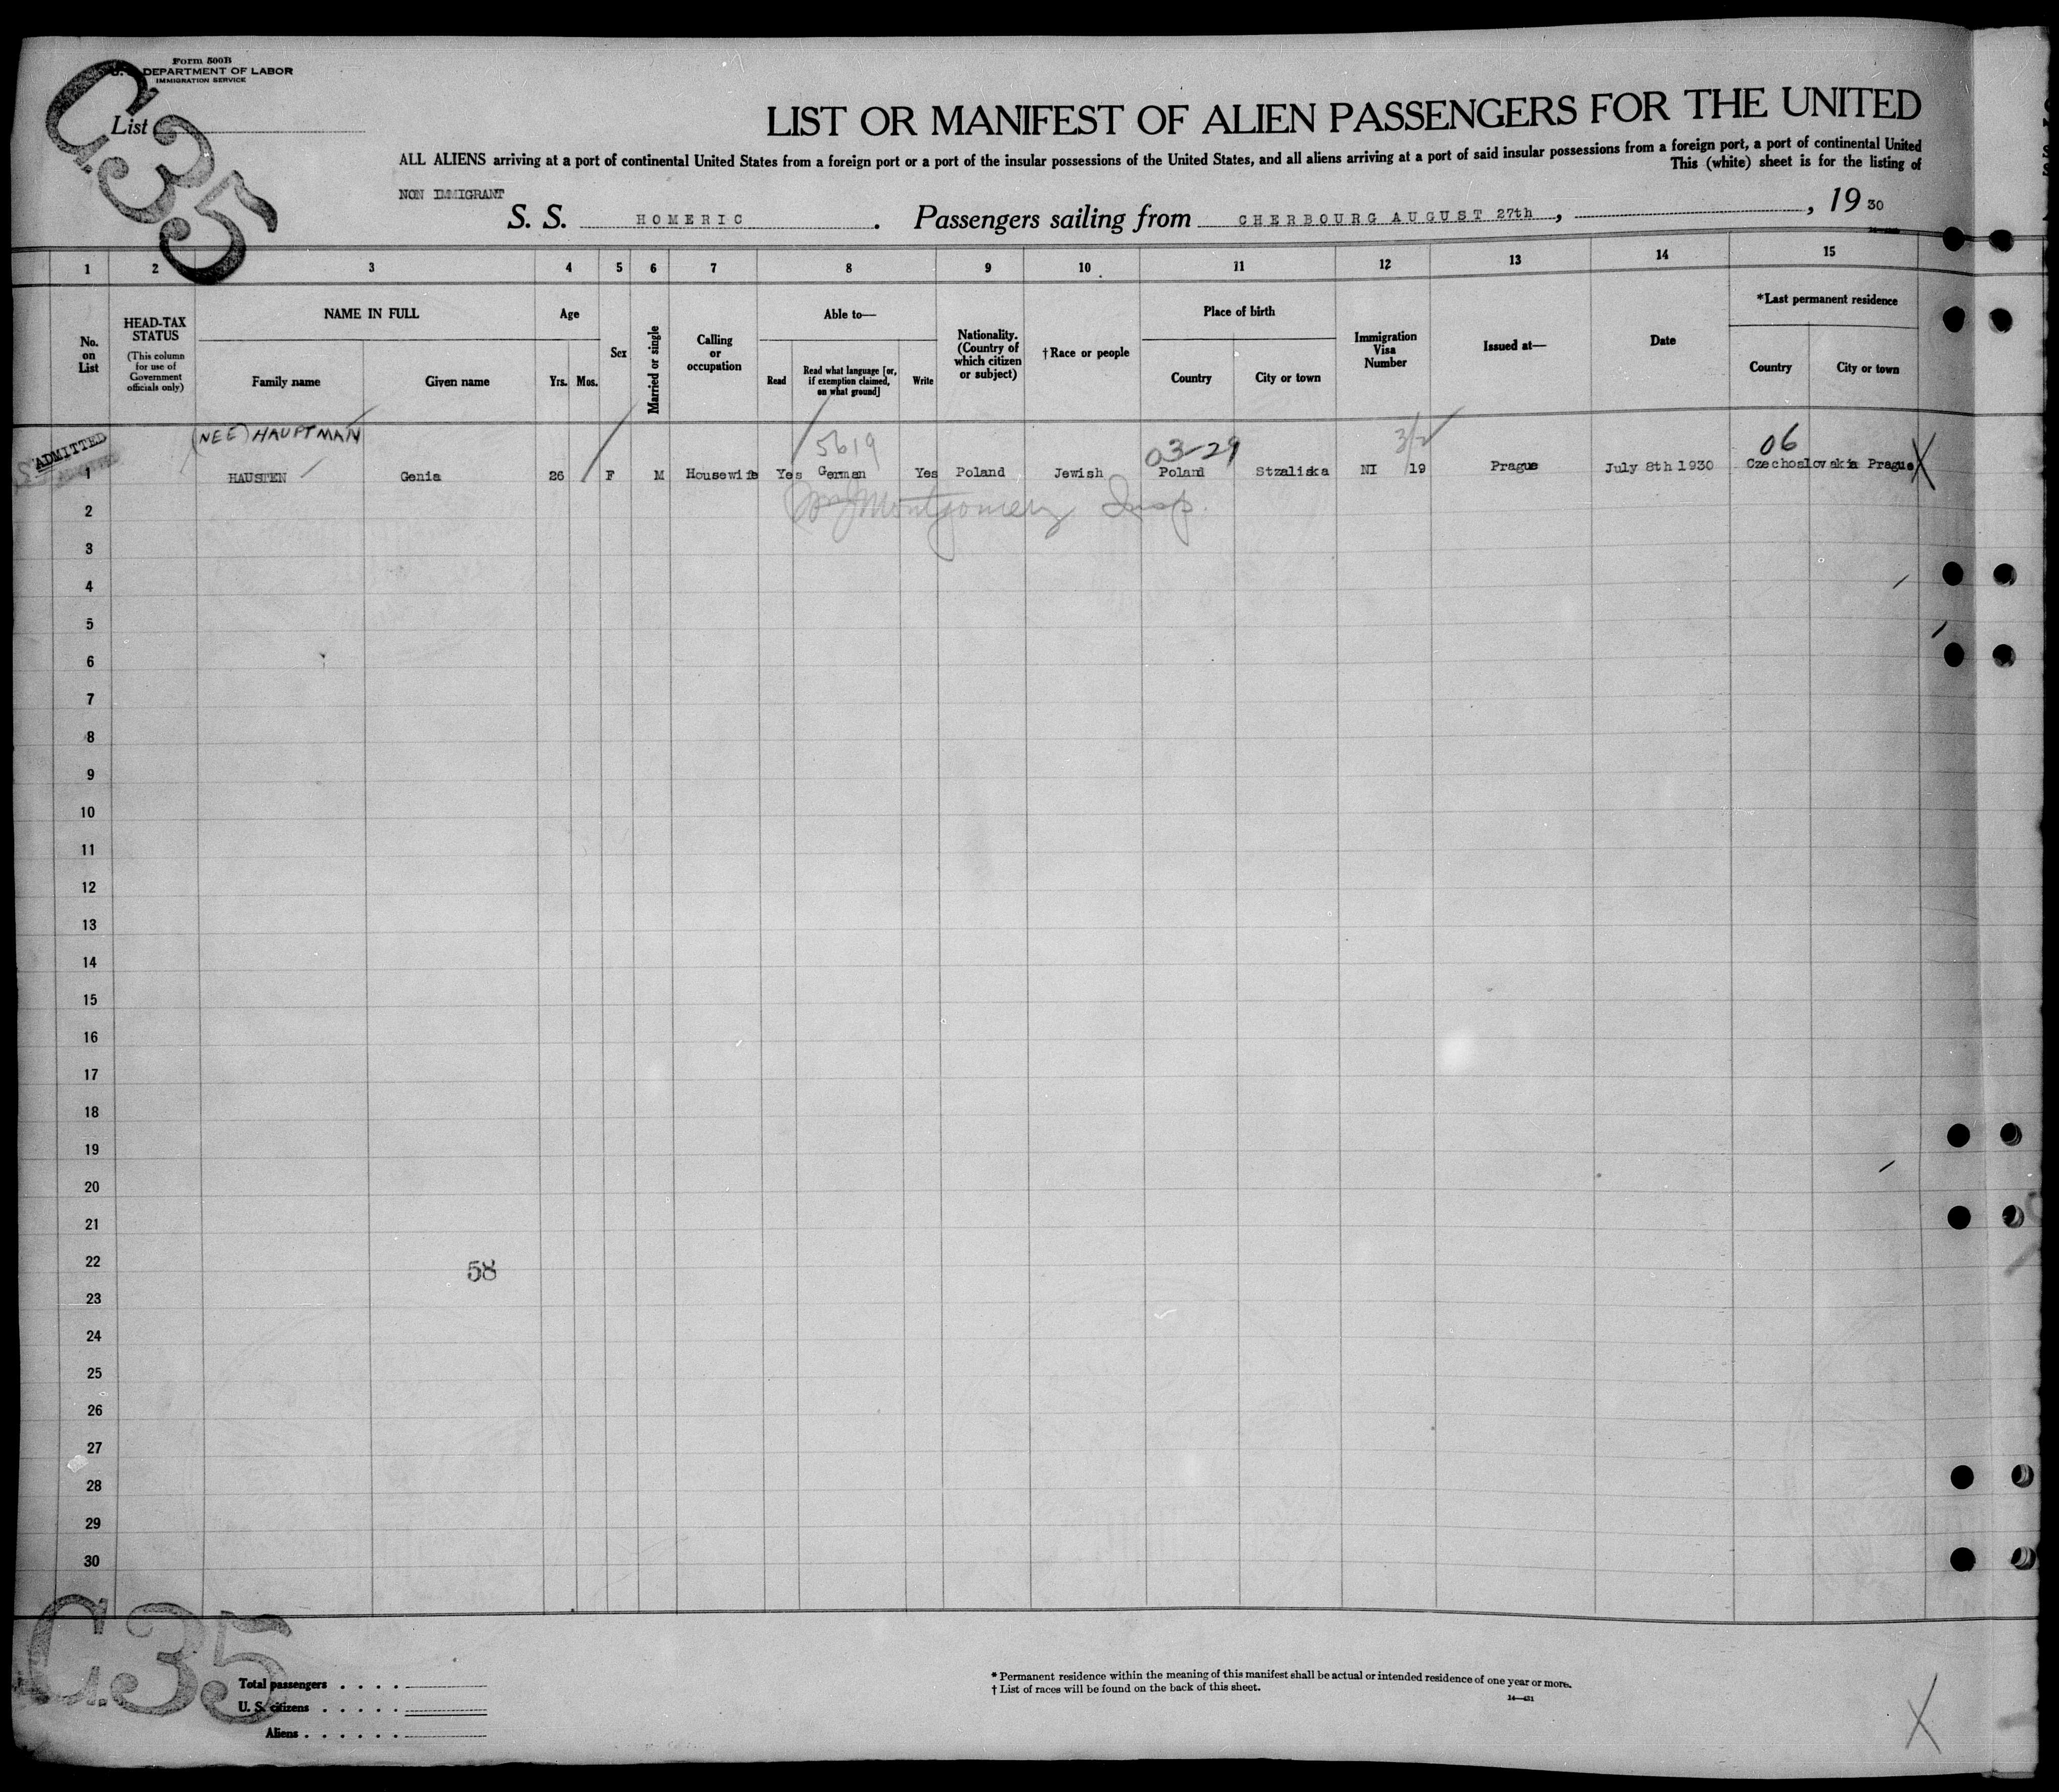 Form 500B
U. S. DEPARTMENT OF LABOR
IMMIGRATION SERVICE
C.35
List
LIST OR MANIFEST OF ALIEN PASSENGERS FOR THE UNITED
ALL ALIENS arriving at a port of continental United States from a foreign port or a port of the insular possessions of the United States, and all aliens arriving at a port of said insular possessions from a foreign port, a port of continental United
This (white) sheet is for the listing of
NON IMMIGRANT
S. S. HOMERIC . Passengers sailing from CHERBOURG AUGUST 27th , , 19 30
1 2 3 4 5 6 7 8 9 10 11 12 13 14 15
No. on List
HEAD-TAX STATUS
(This column for use of Government officials only)
NAME IN FULL
Family name
Given name
Age
Yrs. Mos.
Sex
Married or single
Calling or occupation
Able to—
Read
Read what language [or, if exemption claimed, on what ground]
Write
Nationality. (Country of which citizen or subject)
†Race or people
Place of birth
Country
City or town
Immigration Visa Number
Issued at—
Date
*Last permanent residence
Country
City or town
(NEE) HAUPTMAN 5619 03-29 06
ADMITTED
1 HAUSTEN Genia 26 F M Housewife Yes German Yes Poland Jewish Poland Stzaliska NI 19 Prague July 8th 1930 Czechoslovakia Prague X
Montgomery Insp.
2
3
4
5
6
7
8
9
10
11
12
13
14
15
16
17
18
19
20
21
22
58
23
24
25
26
27
28
29
30
C.35
Total passengers . . . .
U. S. citizens . . . . .
Aliens . . . . . .
* Permanent residence within the meaning of this manifest shall be actual or intended residence of one year or more.
† List of races will be found on the back of this sheet.
X